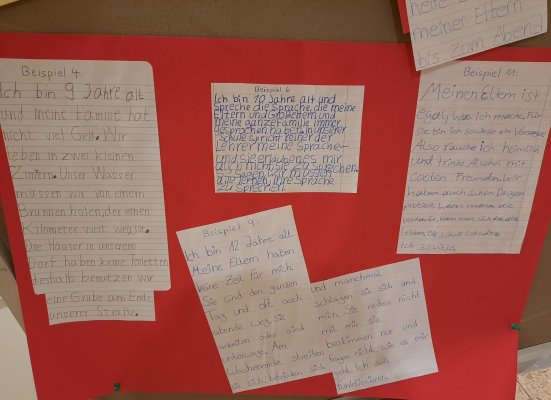 heile
meiner Eltern
bis zum Abend
Beispiel 4
Ich bin 9 Jahre alt
und meine Familie hat
nicht viel Geld. Wir
leben in zwei kleinen
Zimern. Unser Wasser
müssen wir von einem
Brunnen holen, der einen
Kilometer weit weg ist.
Die Häuser in unserem
Dorf haben keine Toiletten
deshalb benutzen wir
eine Grube am Ende
unserer Straße.
Beispiel 6
Ich bin 10 Jahre alt und
spreche die Sprache, die meine
Eltern und Großeltern und
meine ganze Familie immer
gesprochen haben. In unserer
Schule spricht keiner der
Lehrer meine Sprache
und sie erlauben es mir
auch nicht, sie zu sprechen.
Sie sagen, wir müssen
alle lernen, ihre Sprache
zu sprechen.
Beispiel 9:
Ich bin 12 Jahre alt
Meine Eltern haben
keine Zeit für mich.
Sie sind den ganzen
Tag und oft auch
abends weg. Sie
arbeiten oder sind
unterwegs. Am
Wochenende streiten
sie sich, betrinken sich
und manchmal
schlagen sie sich und
mich. Sie reden nicht
mit mir, sie
bestimmen nur und
fragen nicht, wie es mir
geht. Ich soll
funktionieren.
Beispiel 11:
Meinen Eltern ist
Egal, was ich mache. Für
Sie bin ich sowieso ein Versager
Also rauche ich heimlich
und trinke Alkohol mit
Coolen Freunden. Wir
haben auch schon Drogen
probiert. Wenn man die
verkauft, kann man sich das
leben. Die schule schwänze
ich sowiso.